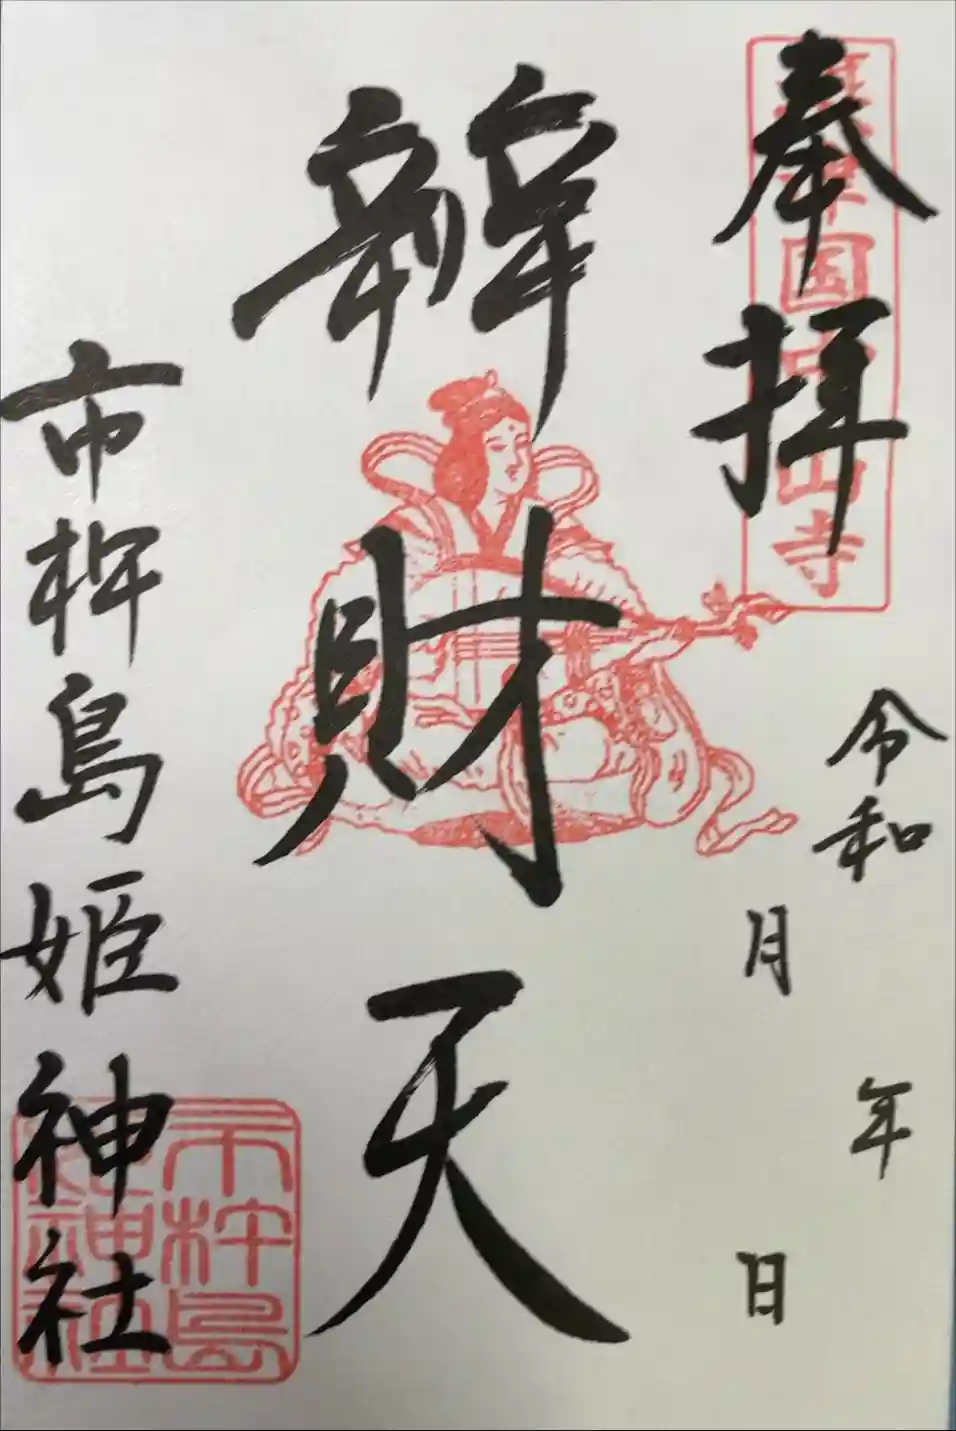 奉拝
摂津国中山寺
令和　年
月　日
辨財天
市杵島姫神社
市杵島
姫神社